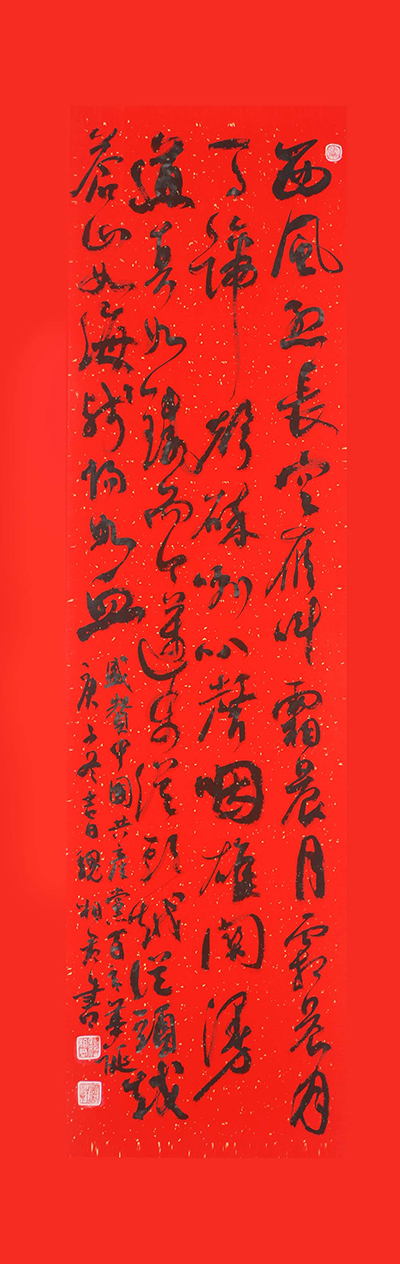 西風烈長空雁叫霜晨月霜晨月
馬蹄聲碎喇叭聲咽雄關漫
道真如鐵而今邁步從頭越從頭越
蒼山如海殘陽如血
盛贊中國共產黨百年華誕
庚子冬吉日魏書